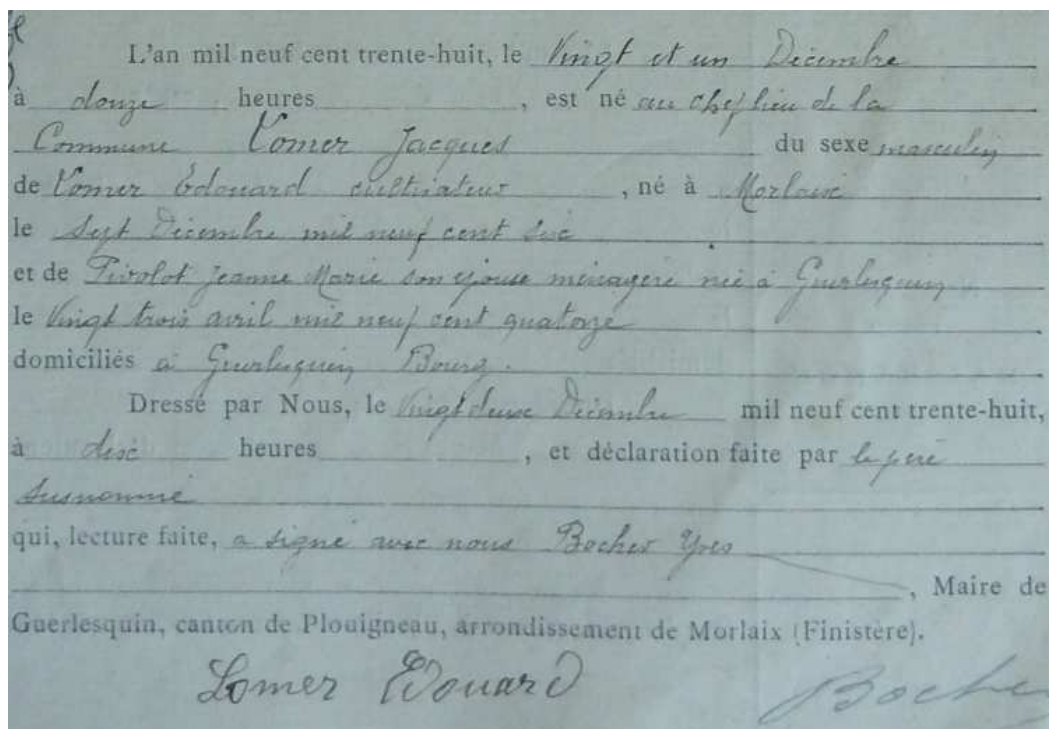 L'an mil neuf cent trente-huit, le Vingt et un Décembre
à douze heures, est né au chef lieu de la
Commune Lomer Jacques du sexe masculin
de Lomer Édouard cultivateur, né à Morlaix
le Sept Décembre mil neuf cent six
et de Pivolot Jeanne Marie son épouse ménagère née à Guerlesquin
le Vingt trois avril mil neuf cent quatorze
domiciliés à Guerlesquin Bourg.
Dressé par Nous, le Vingt deux Décembre mil neuf cent trente-huit,
à dix heures, et déclaration faite par le père
susnommé
qui, lecture faite, a signé avec nous Bocher Yves
, Maire de
Guerlesquin, canton de Plouigneau, arrondissement de Morlaix (Finistère).
Lomer Edouard Boche